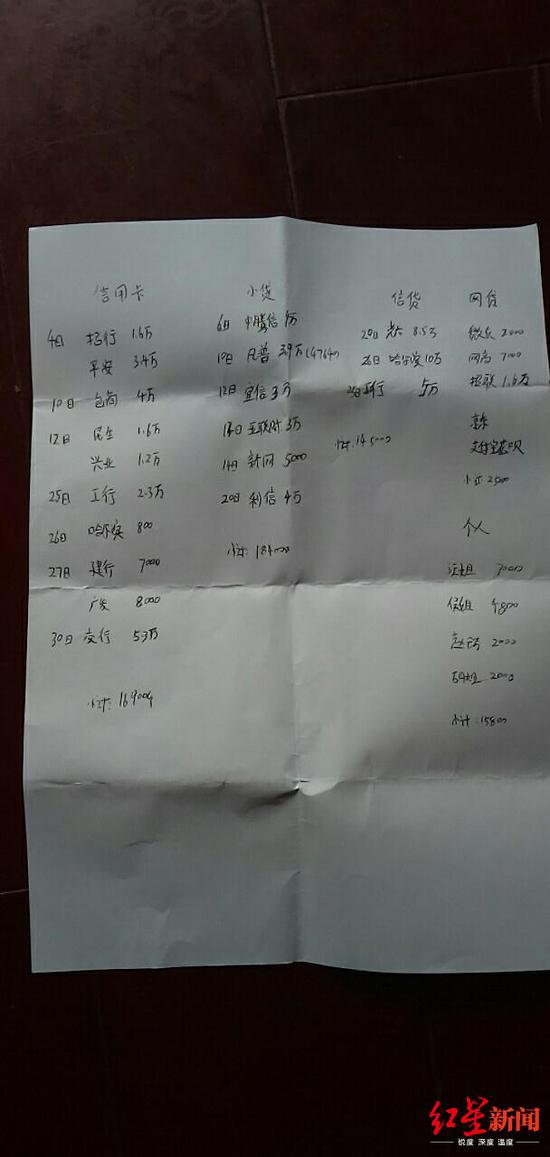 信用卡
4日 招行 1.6万
平安 3.4万
10日 包商 4万
12日 民生 1.6万
兴业 1.2万
25日 工行 2.3万
26日 哈尔滨 800
27日 建行 7000
广发 8000
30日 交行 5.3万
小计: 169000
小贷
6日 中腾信
10日 凡普 3.9万 (4764)
12日 宜信 3万
14日 互联 3万
14日 新网 5000
20日 利信 4万
小计: 184000
信贷
20日 8.5万
26日 哈尔滨 10万
行 5万
小计: 145000
网贷
微众 2000
7000
招联 1.6万
京东
支付宝
小计 25000
个人
汪姐 7000
侯姐 4800
赵 2000
姐 2000
小计: 15800
红星新闻
锐度 深度 温度